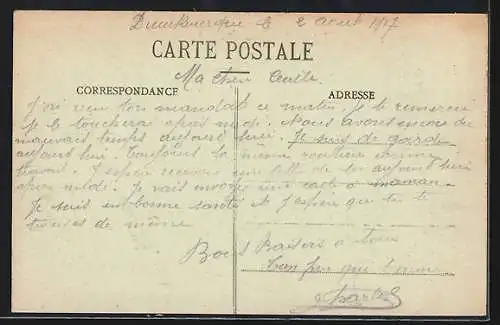 Dunkerque le 2 aout 1917
CARTE POSTALE
Ma
CORRESPONDANCE
ADRESSE
J'ai reçu ton mandat ce matin. Je te remercie
Je le toucherai après midi. Nous avons encore du
mauvais temps aujourd'hui. Je suis de garde
aujourd'hui. Toujours la même
travail. J'espère recevoir une de toi aujourd'hui
après midi. Je vais une carte a maman
Je suis en bonne santé et j'espère que tu te
trouves de même
Bons Baisers a tous
Ton que t'aime
Charles